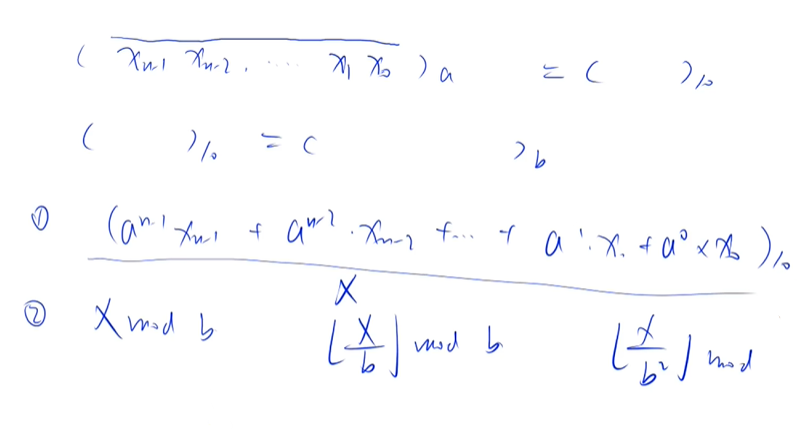 ( x̅ₙ₋₁ xₙ₋₂ . ⋯ x₁ x₀ )ₐ = ( )₁₀
( )₁₀ = ( )_b
① (aⁿ⁻¹ xₙ₋₁ + aⁿ⁻² · xₙ₋₂ + ⋯ + a¹ · x₁ + a⁰ × x₀ )₁₀
X
② X mod b ⌊X/b⌋ mod b ⌊X/b²⌋ mod